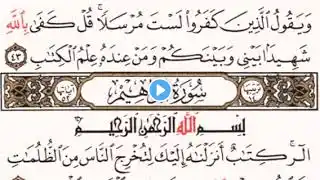 وَيَقُولُ ٱلَّذِينَ كَفَرُوا۟ لَسْتَ مُرْسَلًا ۚ قُلْ كَفَىٰ بِٱللَّهِ
شَهِيدًۢا بَيْنِى وَبَيْنَكُمْ وَمَنْ عِندَهُۥ عِلْمُ ٱلْكِتَٰبِ ٤٣
سُورَةُ إِبْرَٰهِيمَ
بِسْمِ ٱللَّهِ ٱلرَّحْمَٰنِ ٱلرَّحِيمِ
الٓر ۚ كِتَٰبٌ أَنزَلْنَٰهُ إِلَيْكَ لِتُخْرِجَ ٱلنَّاسَ مِنَ ٱلظُّلُمَٰتِ